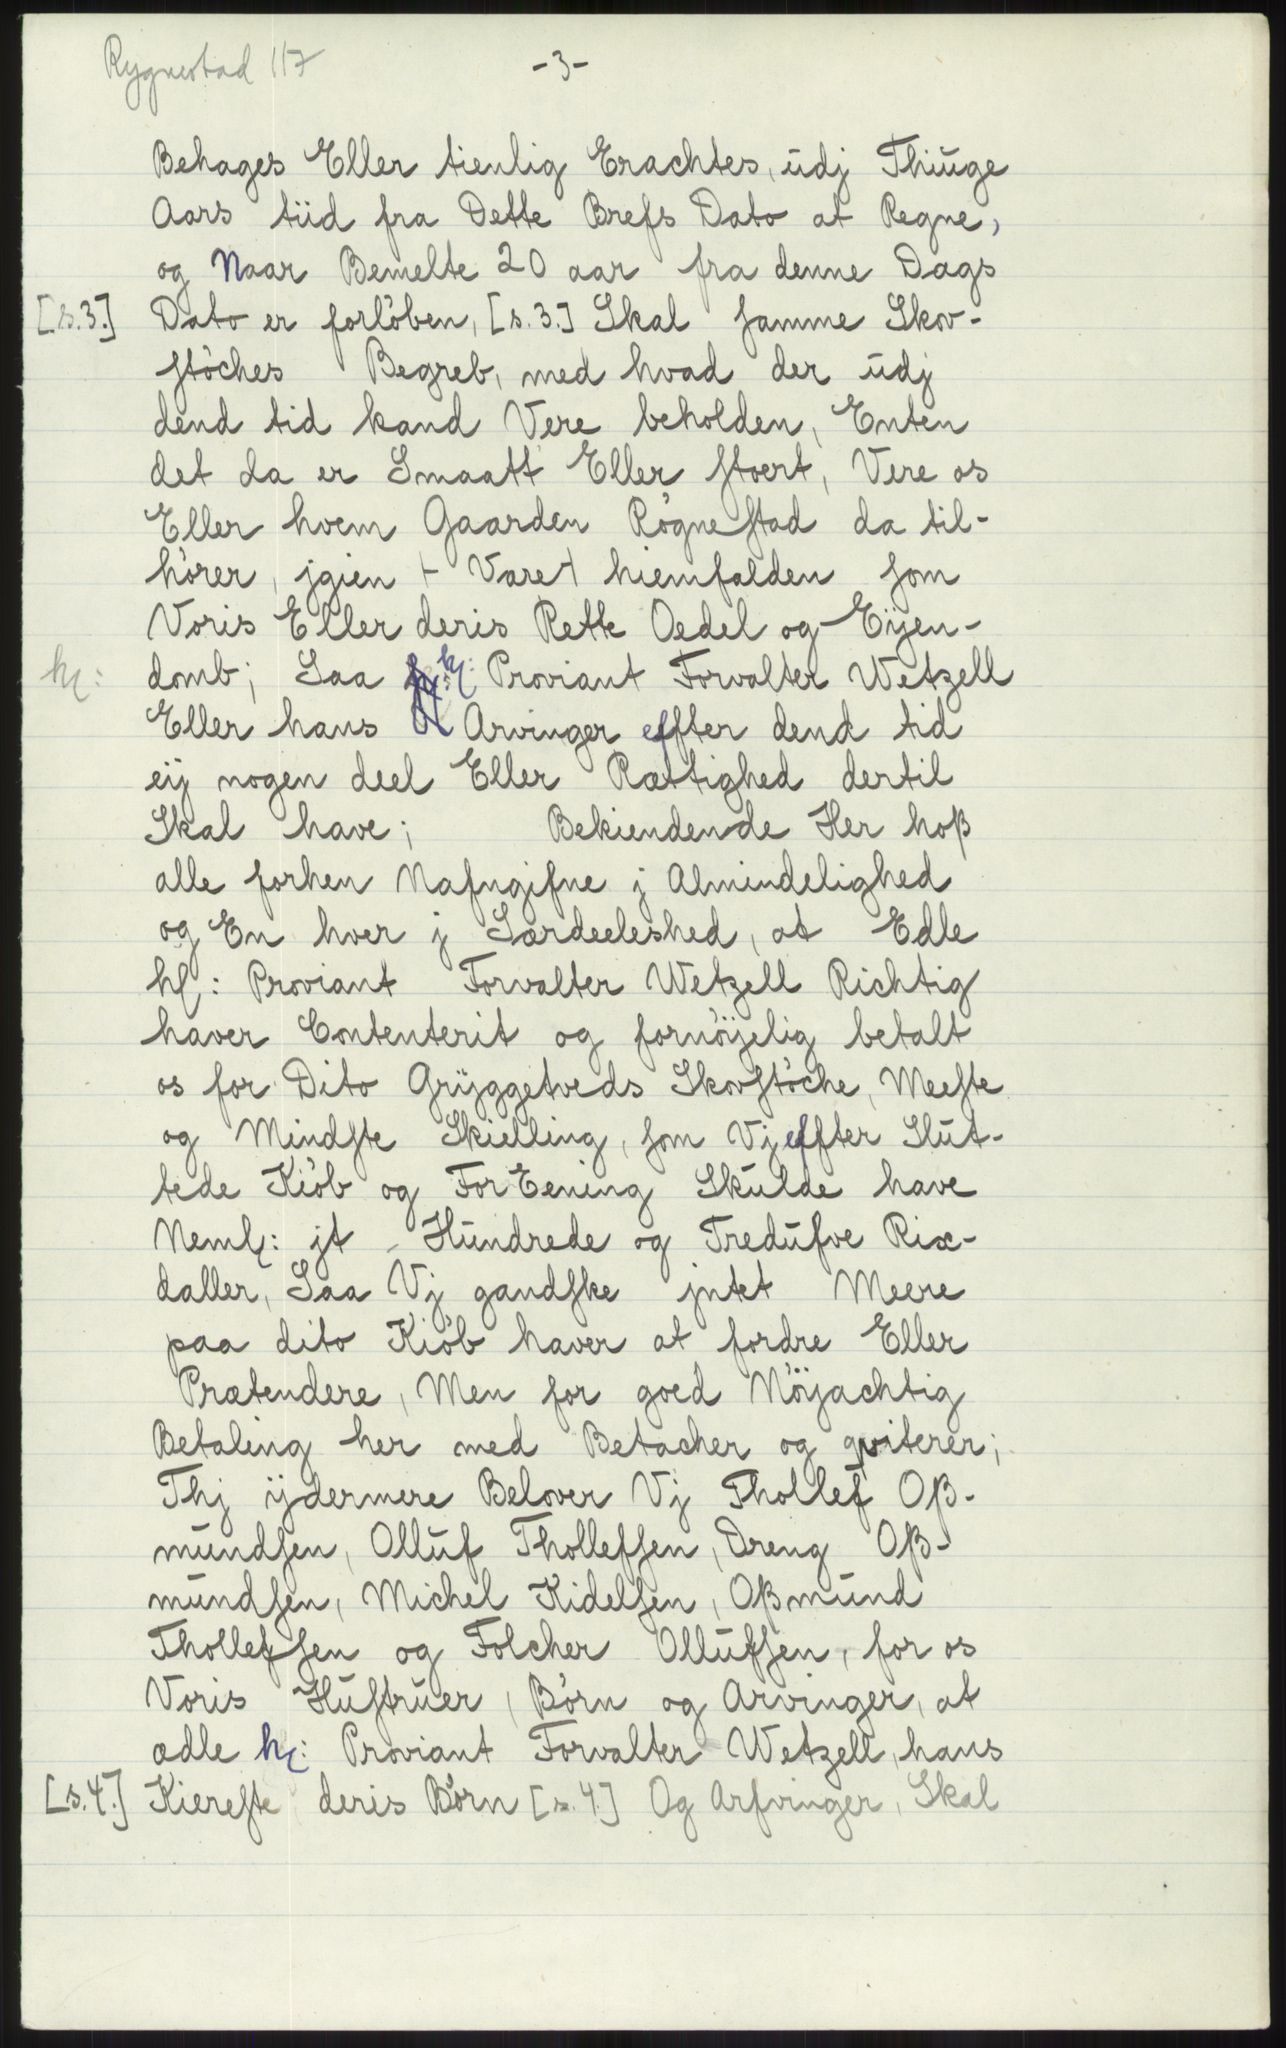 Rygnestad 117
-3-
Behages Eller tienlig Erachtes, udj Thiuge
Aars tiid fra Dette Brefs Dato at Regne,
og Naar Bemelte 20 aar fra denne Dags
[s.3.] Dato er forlöben, [s.3.] Skal samme Skov-
stöches Begreb, med hvad der udj
dend tid kand Vere beholden, Enten
det da er Smaatt Eller stoert, Vere os
Eller hvem Gaarden Rögnestad da til-
hörer, jgien + Vare + hiemfalden som
Voris Eller deris Rette Oedel og Eÿen-
domb; Saa hr: Proviant Forvalter Wetzell
hr:
Eller hans Arvinger effter dend tid
eÿ nogen deel Eller Rættighed dertil
Skal have; Bekiendende Her hoß
alle forhen Nafngifne j Almindelighed
og En hver j Særdeeleshed, at Edle
hr: Proviant Forvalter Wetzell Richtig
haver Contenterit og fornöÿelig betalt
os for Dito Grÿggetveds Skovstöche, Meeste
og Mindste Skielling, som Vj effter Slut-
tede Kiöb og ForEening Skulde have
Neml: jt Hundrede og Tredufve Rix-
daller, Saa Vj gandske jntet Meere
paa dito Kiöb haver at fordre Eller
Prætendere, Men for goed Nöÿachtig
Betaling her med Betacher og qviterer;
Thj ÿdermere Belover Vj Thollef Oß-
mundsen, Olluf Thollefsen, Dreng Oß-
mundsen, Michel Kidelsen, Oßmund
Thollefsen og Folcher Ollufsen, for os
Voris Hustruer, Börn og Arvinger, at
ædle hr: Proviant Forvalter Wetzell, hans
[s.4.] Kiereste deris Börn [s.4.] Og Arfvinger, Skal